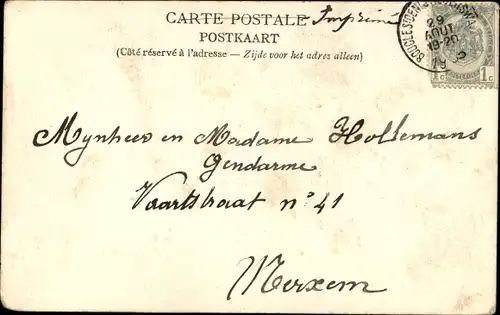 CARTE POSTALE Imprimé
POSTKAART
(Côté réservé à l'adresse — Zijde voor het adres alleen)
29
AOUT
19-20
1c
Mynheer en Madame Hollemans
Gendarme
Vaartstraat nº 41
Merxem